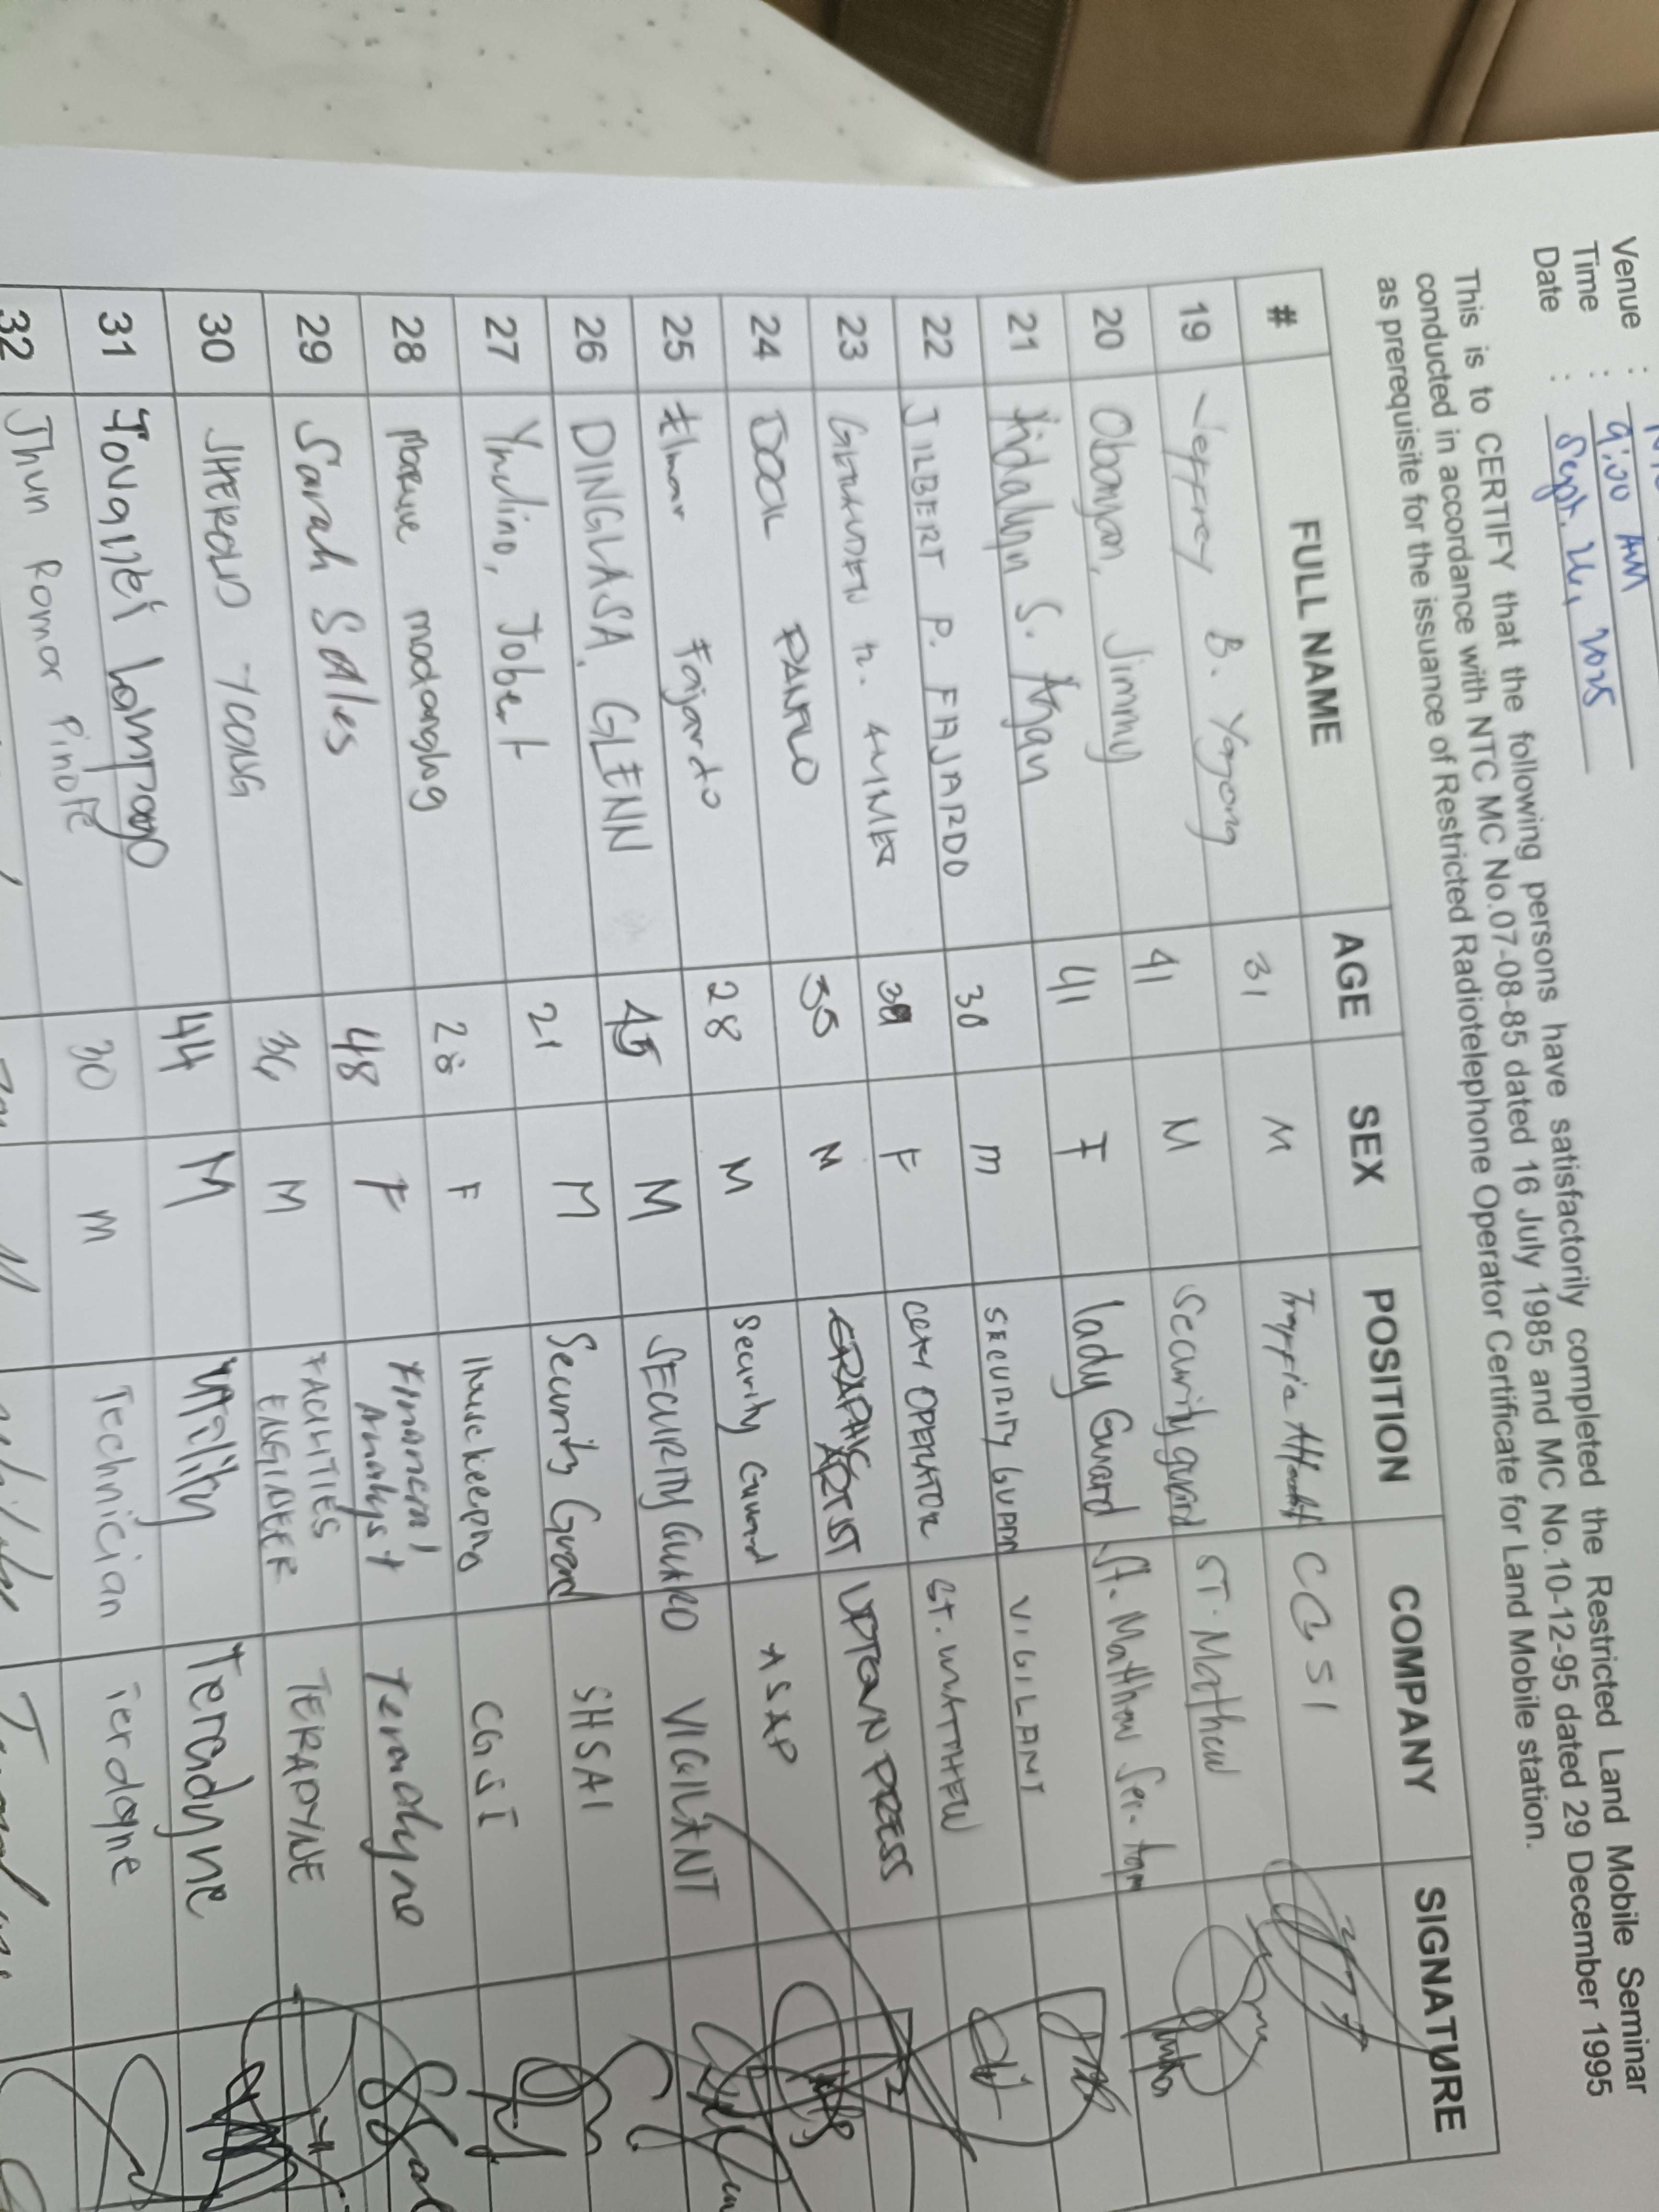 Venue :
Time : 9:00 AM
Date : Sept. 26, 2025
This is to CERTIFY that the following persons have satisfactorily completed the Restricted Land Mobile Seminar
conducted in accordance with NTC MC No.07-08-85 dated 16 July 1985 and MC No.10-12-95 dated 29 December 1995
as prerequisite for the issuance of Restricted Radiotelephone Operator Certificate for Land Mobile station.
# FULL NAME AGE SEX POSITION COMPANY SIGNATURE
19 Jeffrey B. Yagong 31 M CGSI
20 Obanyan, Jimmy 41 M Security guard ST. Mathew
21 Aidalyn S. Agan 41 F lady Guard St. Matthew Ser.
22 JILBERT P. FAJARDO 30 m SECURITY VIGILANT
23 F CCTV OPERATOR ST. MATTHEW
24 35 M GRAPHIC ARTIST UPTOWN PRESS
25 Elmar Fajardo 28 M Security Guard ASAP
26 DINGLASA, GLENN 45 M SECURITY GUARD VIGILANT
27 Ynulino, Jobert 21 M Security Guard SHSAI
28 28 F Housekeeping CGSI
29 Sarah Sales 48 F Financial Analyst Teradyne
30 JHEROLD YCONG 36 M FACILITIES ENGINEER TERADYNE
31 Jovaniel Lampago 44 M Utility Teradyne
32 Jhun Romar Pinote 30 m Technician Terdayne